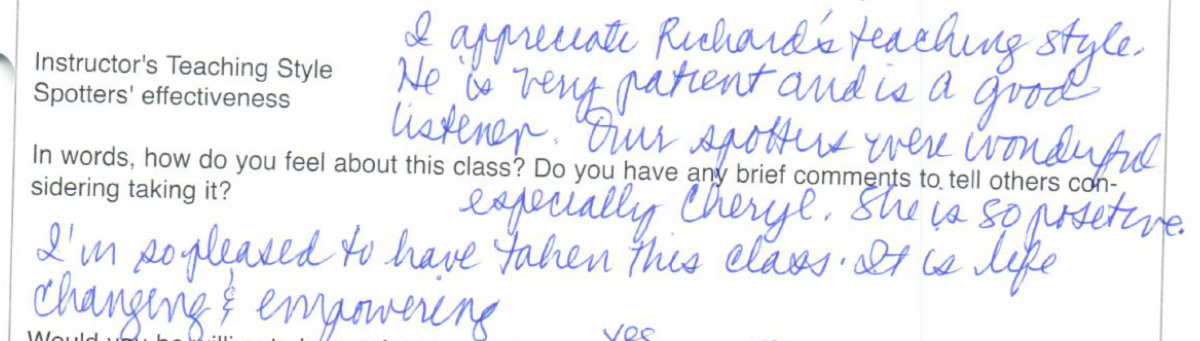 I appreciate Richard's teaching style.
Instructor's Teaching Style
He is very patient and is a good
Spotters' effectiveness
listener. Our spotters were wonderful
In words, how do you feel about this class? Do you have any brief comments to tell others con-
sidering taking it?
especially Cheryl. She is so posetive.
I'm so pleased to have taken this class. It is life
changing & empowering
Would you be
yes